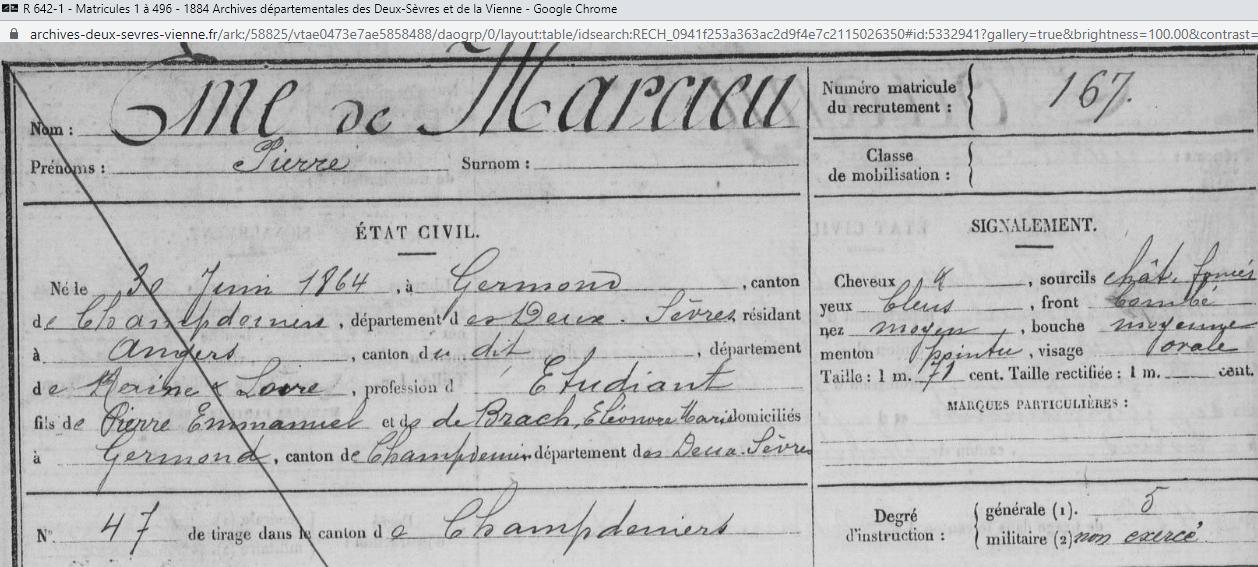 R 642-1 - Matricules 1 à 496 - 1884 Archives départementales des Deux-Sèvres et de la Vienne - Google Chrome
archives-deux-sevres-vienne.fr/ark:/58825/vtae0473e7ae5858488/daogrp/0/layout:table/idsearch:RECH_0941f253a363ac2d9f4e7c2115026350#id:5332941?gallery=true&brightness=100.00&contrast=
Nom : Émé de Marcieu
Prénoms : Pierre Surnom :
Numéro matricule du recrutement : 167.
Classe de mobilisation :
ÉTAT CIVIL.
Né le 30 Juin 1864, à Germond, canton
de Champdeniers, département des Deux-Sèvres, résidant
à Angers, canton du dit, département
de Maine & Loire, profession d Etudiant
fils de Pierre Emmanuel et de de Brach, Eléonore Marie domiciliés
à Germond, canton de Champdeniers département des Deux-Sèvres
N° 47 de tirage dans le canton de Champdeniers
SIGNALEMENT.
Cheveux &, sourcils chât. foncés
yeux bleus, front bombé
nez moyen, bouche moyenne
menton pointu, visage ovale
Taille : 1 m. 71 cent. Taille rectifiée : 1 m. cent.
MARQUES PARTICULIÈRES :
Degré d'instruction :
générale (1). 5
militaire (2) non exercé